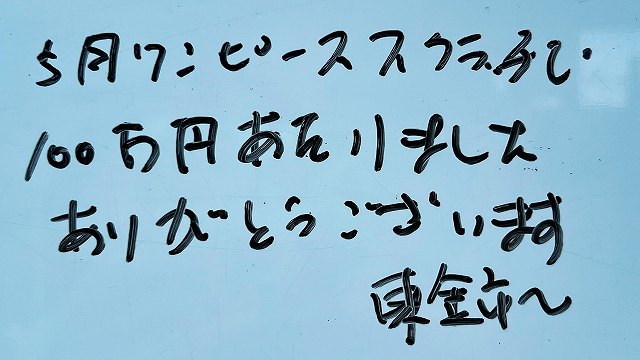 5月ワンピーススクラッチで
100万円あたりました
ありがとうございます
東金市〜